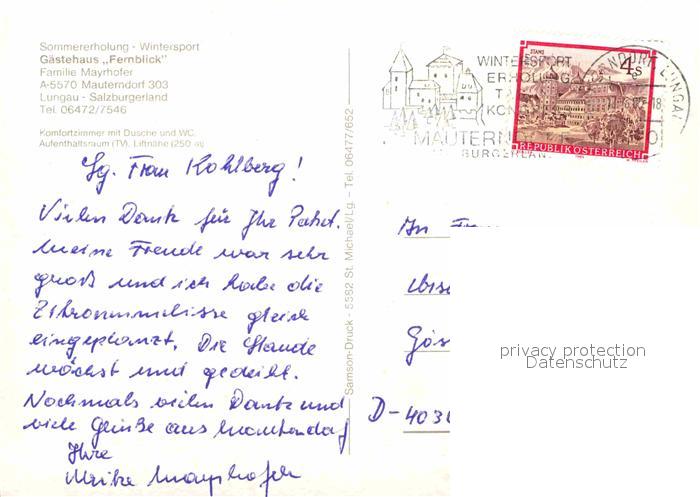 Sommererholung - Wintersport
Gästehaus „Fernblick"
Familie Mayrhofer
A-5570 Mauterndorf 303
Lungau - Salzburgerland
Tel. 06472/7546
Komfortzimmer mit Dusche und WC.
Aufenthaltsraum (TV). Liftnähe (250 m)
Sg. Frau Kohlberg!
Vielen Dank für Ihr Paket.
Meine Freude war sehr
groß und ich habe die
Zitronenmelisse gleich
eingepflanzt. Die Staude
wächst und gedeiht.
Nochmals vielen Dank und
viele Grüße aus Mauterndorf
Ihre
Mayrhofer
Samson-Druck - 5582 St. Michael/Lg. - Tel. 06477/652
WINTERSPORT
ERHOLUNG
MAUTERN
BURGERLAN
STAMS
4 S
REPUBLIK ÖSTERREICH
LUNGAU
An
D-4030
privacy protection
Datenschutz